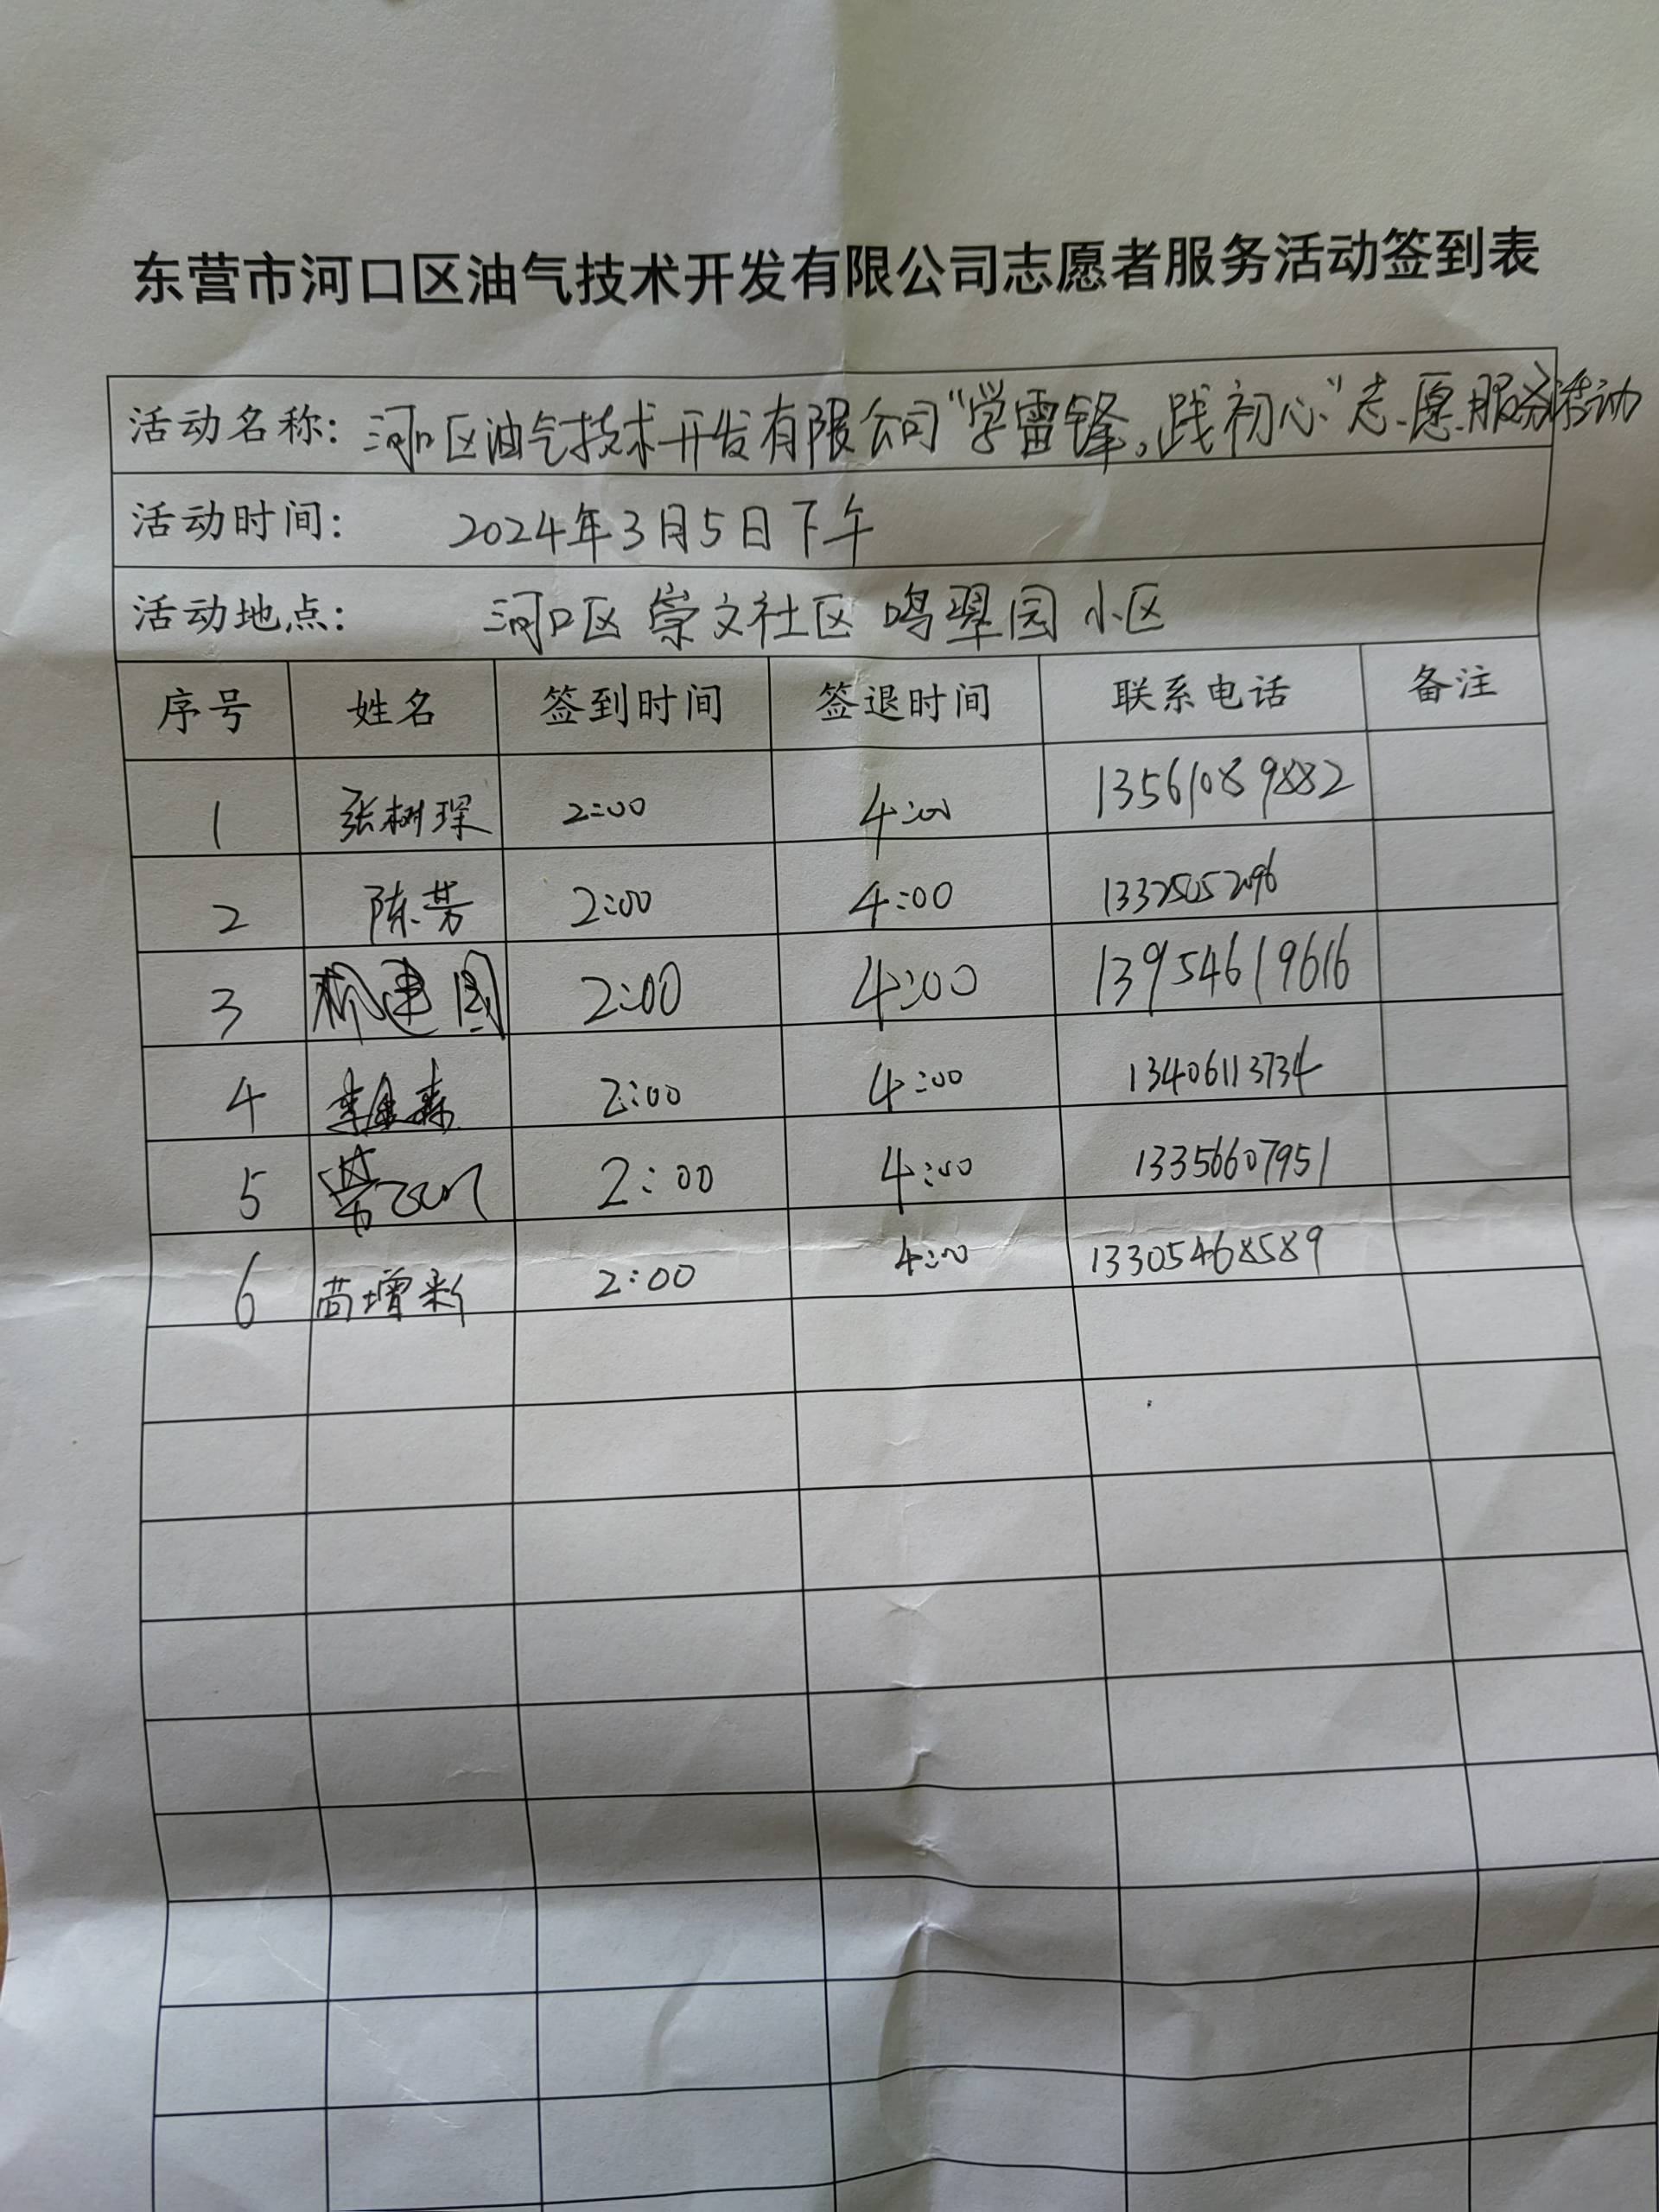 东营市河口区油气技术开发有限公司志愿者服务活动签到表
活动名称：河口区油气技术开发有限公司“学雷锋，践初心”志愿服务活动
活动时间： 2024年3月5日下午
活动地点： 河口区崇文社区鸣翠园小区
序号 姓名 签到时间 签退时间 联系电话 备注
1 张树琛 2:00 4:00 13561089882
2 陈芳 2:00 4:00
3 2:00 4:00 13954619616
4 2:00 4:00 13406113734
5 2:00 4:00 13356607951
6 2:00 4:00 13305468589